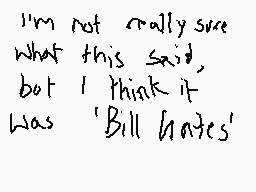 I'm not really sure
what this said,
but I think it
was 'Bill hates'